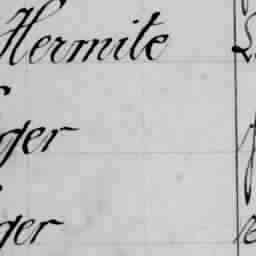 Hermite
ger
ger